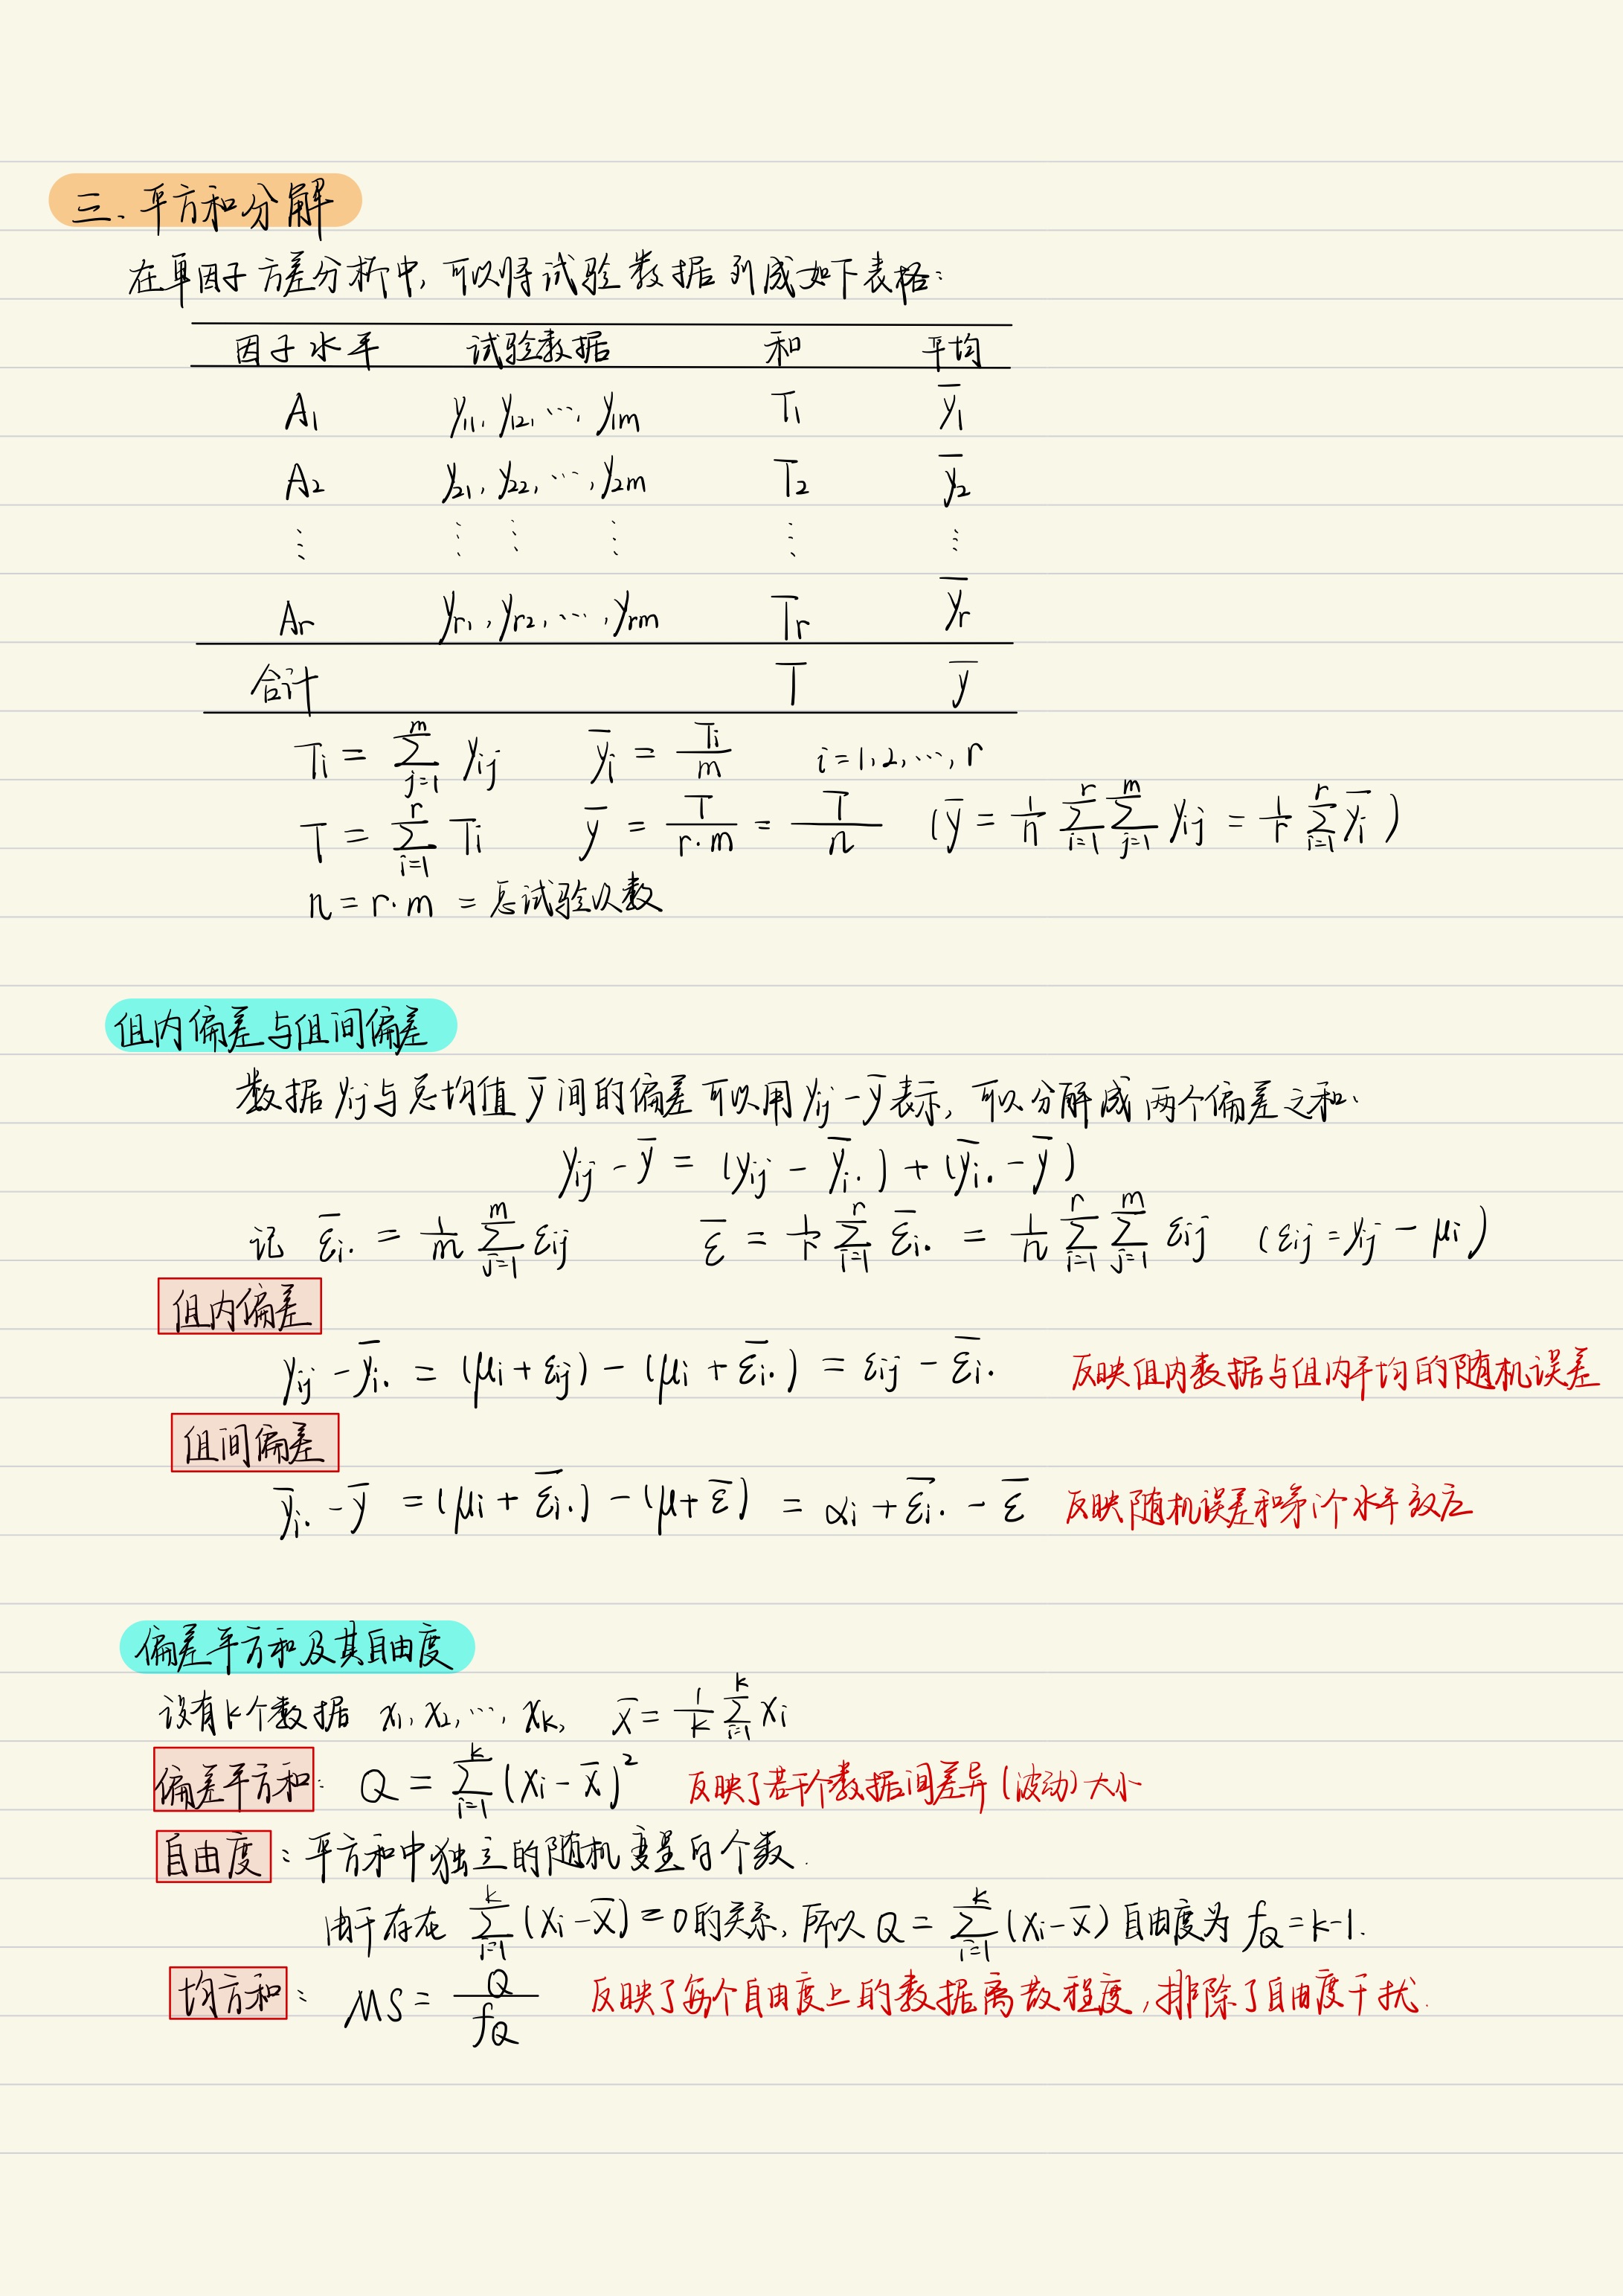 三、平方和分解
在单因子方差分析中,可以将试验数据列成如下表格:
因子水平 试验数据 和 平均
A₁ y₁₁, y₁₂, ⋯, y₁ₘ T₁ ȳ₁
A₂ y₂₁, y₂₂, ⋯, y₂ₘ T₂ ȳ₂
⋮ ⋮ ⋮ ⋮ ⋮ ⋮
Aᵣ yᵣ₁, yᵣ₂, ⋯, yᵣₘ Tᵣ ȳᵣ
合计 T ȳ
Tᵢ = \sum_{j=1}^{m} y_{ij} ȳᵢ = \frac{Tᵢ}{m} i=1,2,⋯,r
T = \sum_{i=1}^{r} Tᵢ ȳ = \frac{T}{r·m} = \frac{T}{n} (ȳ = \frac{1}{n} \sum_{i=1}^{r} \sum_{j=1}^{m} y_{ij} = \frac{1}{r} \sum_{i=1}^{r} ȳᵢ)
n = r·m = 总试验次数
组内偏差与组间偏差
数据 y_{ij} 与总均值 ȳ 间的偏差可以用 y_{ij} - ȳ 表示, 可以分解成两个偏差之和.
y_{ij} - ȳ = (y_{ij} - ȳ_{i·}) + (ȳ_{i·} - ȳ)
记 \bar{ε}_{i·} = \frac{1}{m} \sum_{j=1}^{m} ε_{ij} \bar{ε} = \frac{1}{r} \sum_{i=1}^{r} \bar{ε}_{i·} = \frac{1}{n} \sum_{i=1}^{r} \sum_{j=1}^{m} ε_{ij} (ε_{ij} = y_{ij} - μᵢ)
组内偏差
y_{ij} - ȳ_{i·} = (μᵢ + ε_{ij}) - (μᵢ + \bar{ε}_{i·}) = ε_{ij} - \bar{ε}_{i·} 反映组内数据与组内平均的随机误差
组间偏差
ȳ_{i·} - ȳ = (μᵢ + \bar{ε}_{i·}) - (μ + \bar{ε}) = αᵢ + \bar{ε}_{i·} - \bar{ε} 反映随机误差和第i个水平效应
偏差平方和及其自由度
设有k个数据 x₁, x₂, ⋯, xₖ, x̄ = \frac{1}{k} \sum_{i=1}^{k} xᵢ
偏差平方和: Q = \sum_{i=1}^{k} (xᵢ - x̄)² 反映了若干个数据间差异(波动)大小
自由度: 平方和中独立的随机变量的个数.
由于存在 \sum_{i=1}^{k} (xᵢ - x̄) = 0 的关系, 所以 Q = \sum_{i=1}^{k} (xᵢ - x̄) 自由度为 f_Q = k-1.
均方和: MS = \frac{Q}{f_Q} 反映了每个自由度上的数据离散程度, 排除了自由度干扰.